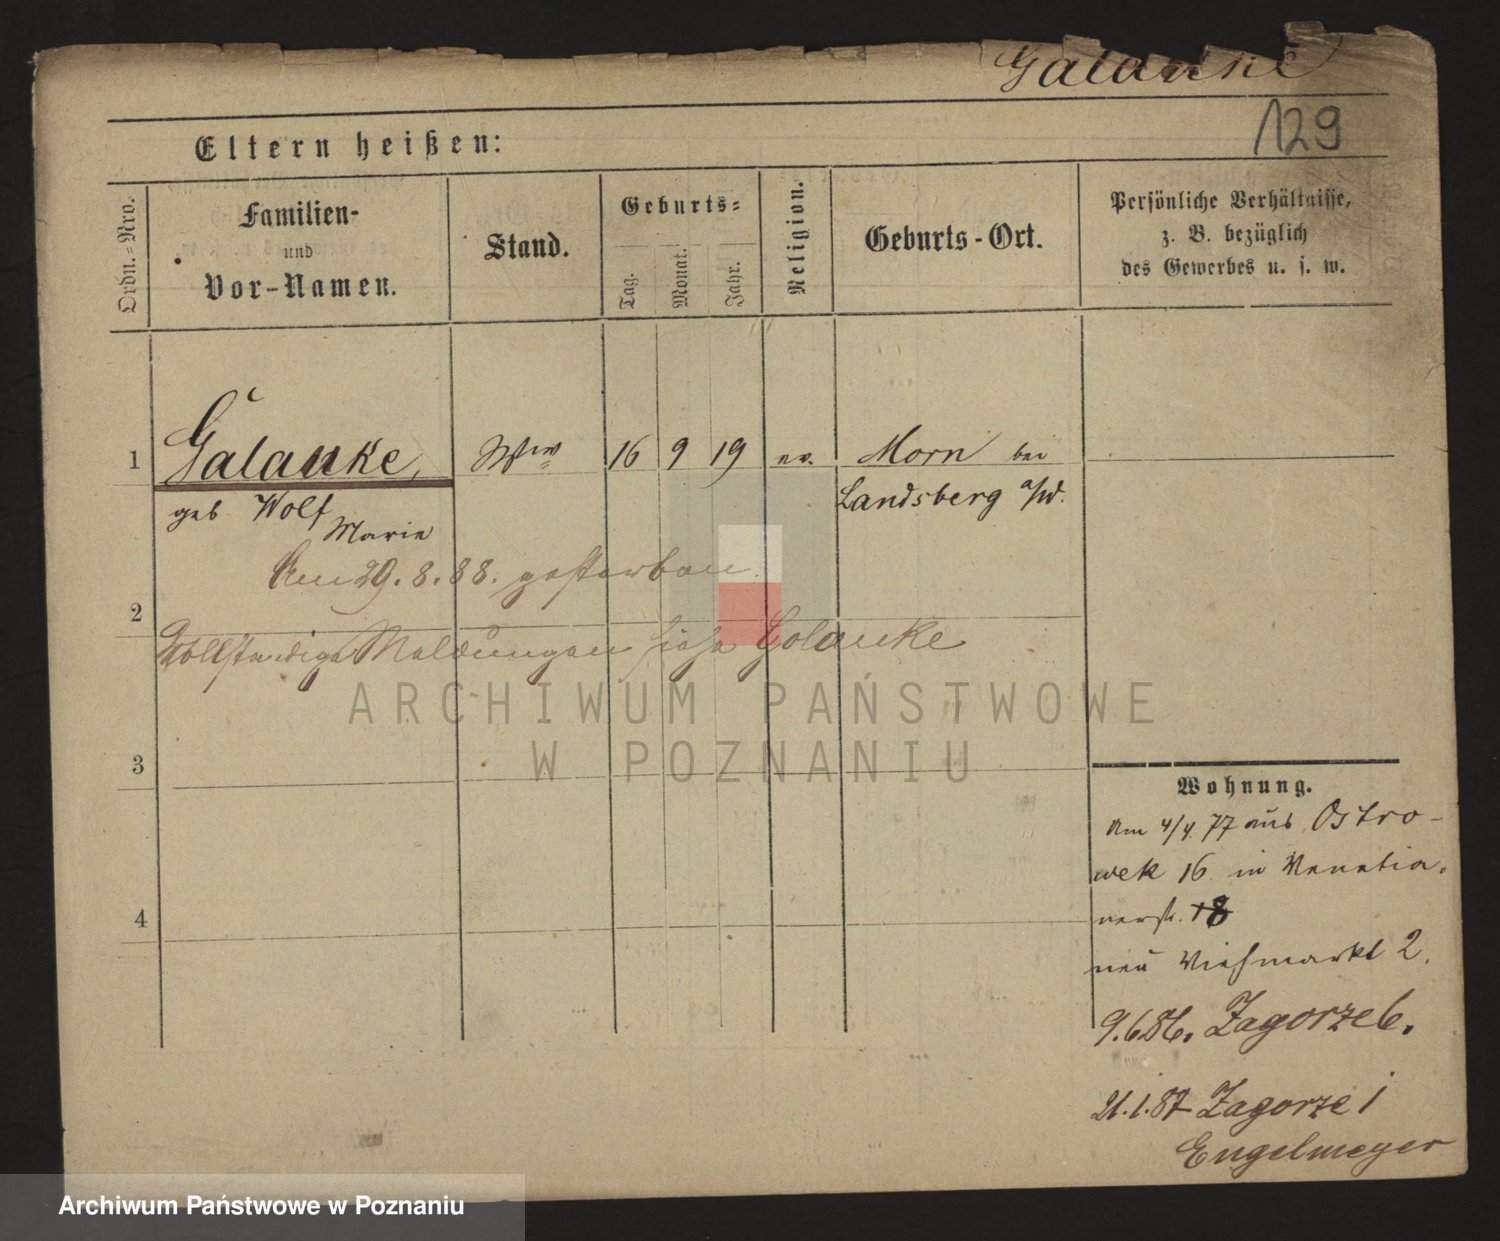 Galanke
129
Eltern heißen:
Ordn.-Nro.
Familien-
und
Vor-Namen.
Stand.
Geburts-
Tag.
Monat.
Jahr.
Religion.
Geburts-Ort.
Persönliche Verhältnisse,
z. B. bezüglich
des Gewerbes u. s. w.
1 Galanke, Wwe 16 9 19 ev. Morn bei
geb Wolf Landsberg a/W.
Marie
Am 29. 8. 88. gestorben.
2
Vollständige Meldungen siehe Golanke
ARCHIWUM PAŃSTWOWE
W POZNANIU
3
Wohnung.
Am 4/4. 77 aus Ostro-
wek 16 in Venetia-
nerstr. 18
4
neu Viehmarkt 2.
9.6.86. Zagorze 6.
21.1.87 Zagorze 1
Engelmeyer
Archiwum Państwowe w Poznaniu